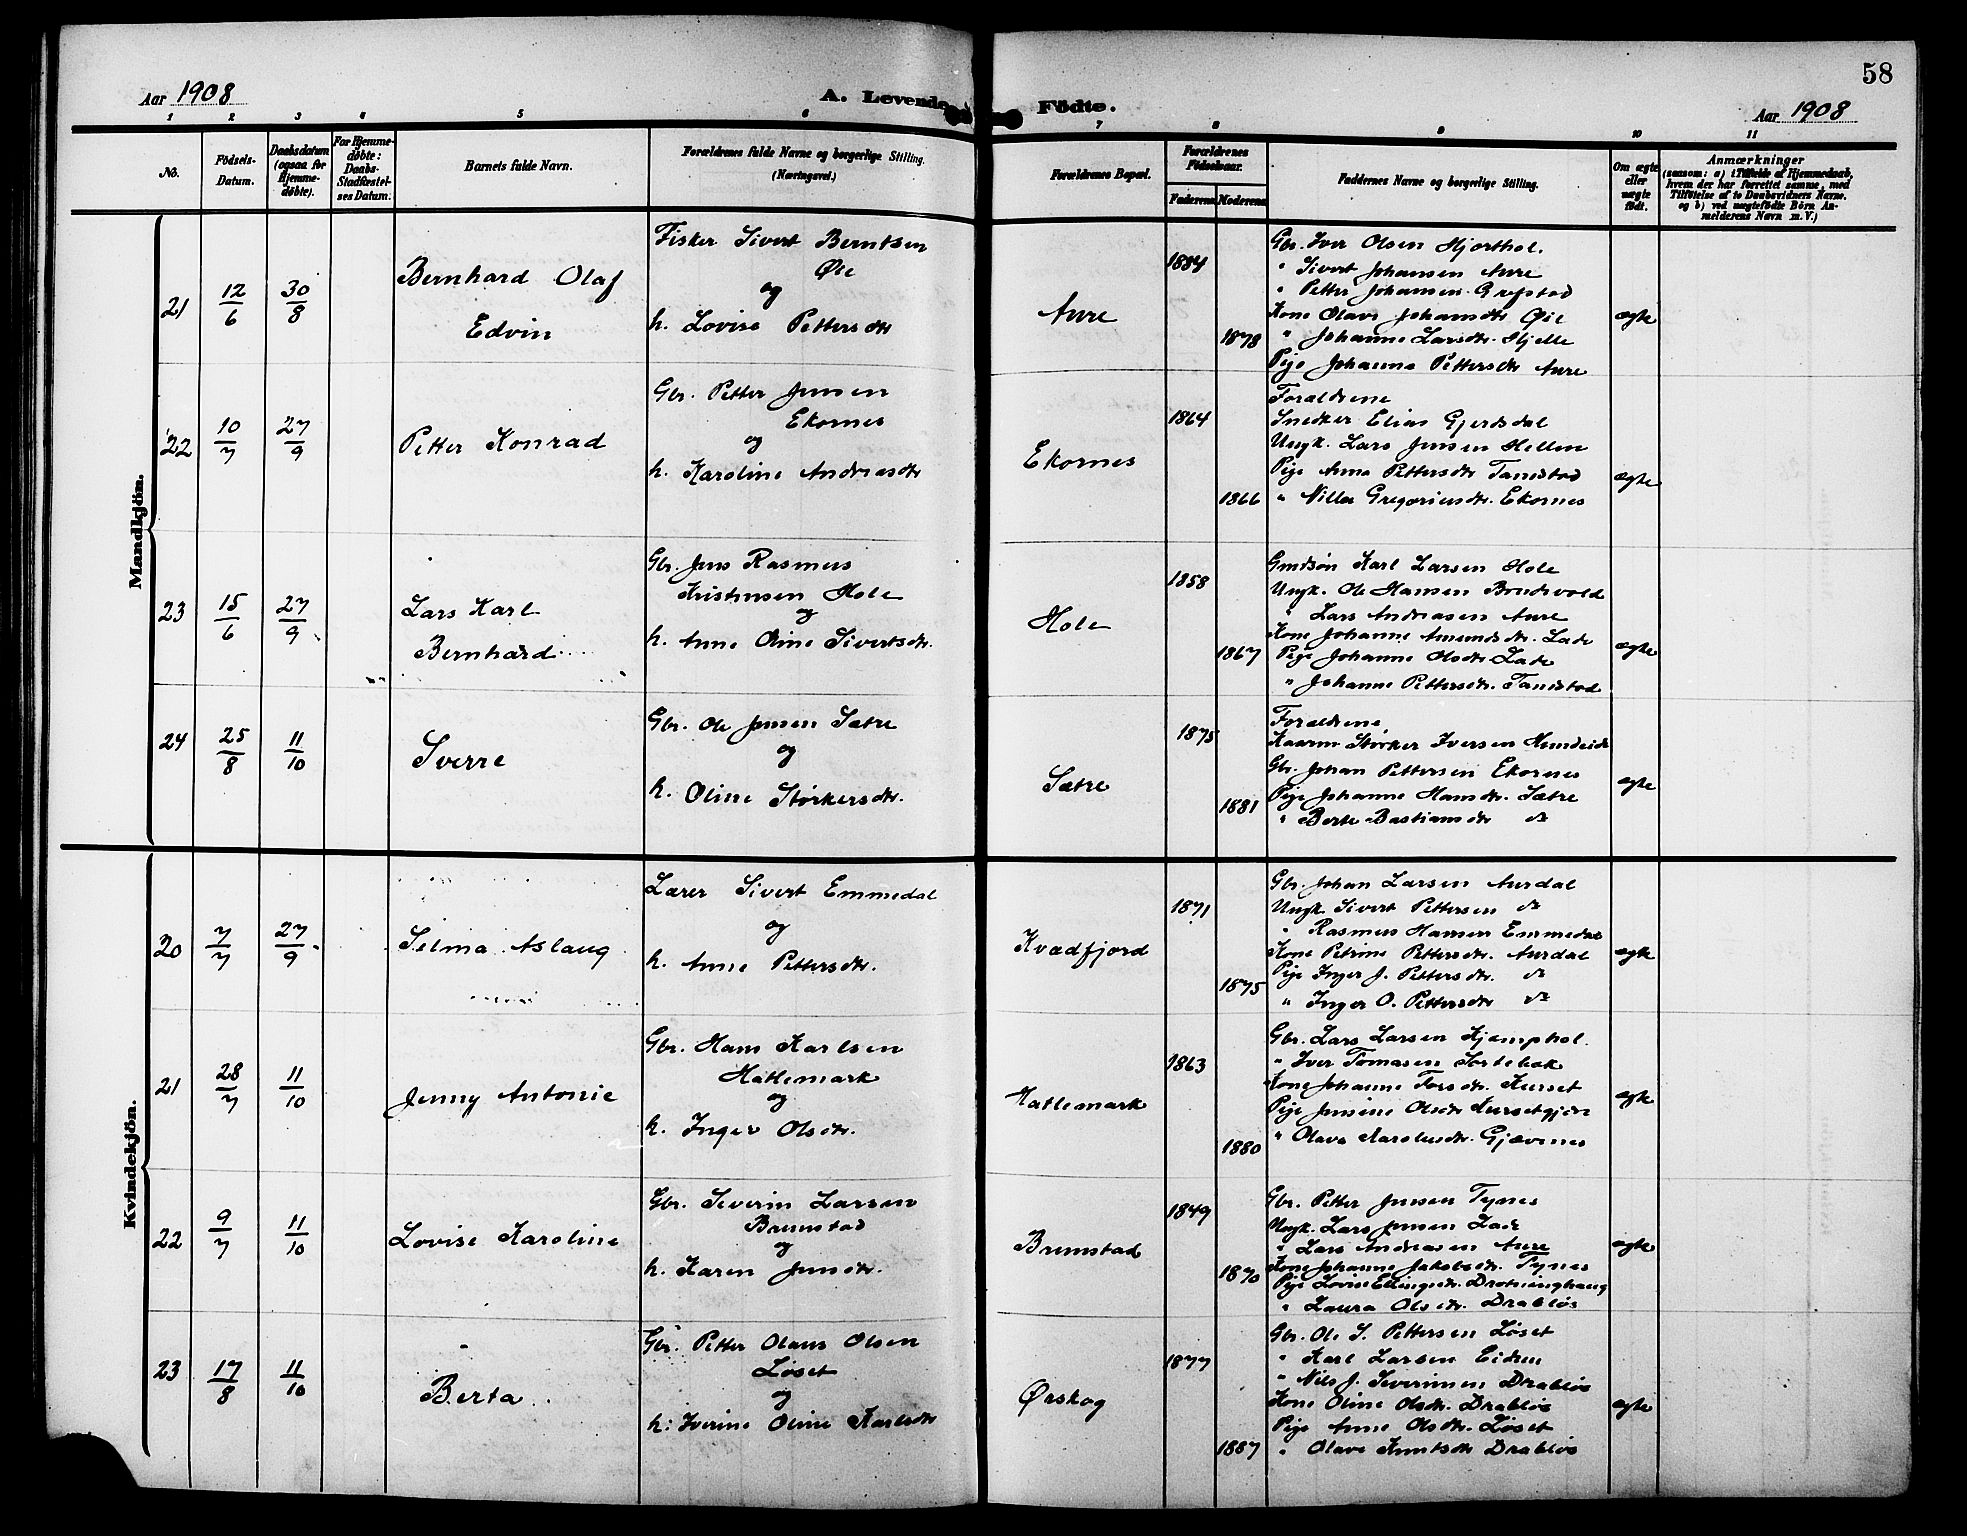 58
Aar 1908
A. Levende Födte.
Aar 1908
1 2 3 4 5 6 7 8 9 10 11
No.
Födsels-Datum.
Daabsdatum (ogsaa for Hjemme-døbte).
For Hjemme-døbte: Daabs-Stadfæstel-ses Datum.
Barnets fulde Navn.
Forældrenes fulde Navne og borgerlige Stilling.
(Næringsvei.)
Forældrenes Bopæl.
Forældrenes Födselsaar.
Faderens Moderens
Faddernes Navne og borgerlige Stilling.
Om ægte eller uægte födt.
Anmærkninger
(saasom: a) i Tilfælde af Hjemmedaab,
hvem der har forrettet samme, med
Tilföielse af to Daabsvidners Navne.
og b) ved uægtefödte Börn An-
melderens Navn m. V.)
Mandkjön.
21 12/6 30/8
Bernhard Olaf
Edvin
Fisker Sivert Berntsen
Øie
og
h. Lovise Pettersdtr
Aure
1884
1878
Gbr. Iver Olsen Hjorthol.
" Sivert Johansen Aure
" Petter Johansen Grepstad
Kone Olave Johansdtr Øie
" Johanne Larsdtr. Hjelle
Pige Johanna Pettersdtr Aure
ægte
22 10/7 27/9
Petter Konrad
Gbr. Petter Jensen
Ekornes
og
h. Karoline Andreasdtr
Ekornes
1864
1866
Forældrene
Snedker Elias Gjerdsdal
Ungk. Lars Jensen Hellen
Pige Anna Pettersdtr Tandstad
" Nilla Gregoriusdtr. Ekornes
ægte
23 15/6 27/9
Lars Karl
Bernhard
Gbr. Jens Rasmus
Kristensen Hole
og
h. Anne Oline Sivertsdtr.
Hole
1858
1867
Gmdsøn Karl Larsen Hole
Ungk. Ole Hansen Brudevold
" Lars Andreasen Aure
Kone Johanne Amundsdtr. Lade
Pige Johanne Olsdtr Lade
" Johanne Pettersdtr. Tandstad
ægte
24 25/8 11/10
Sverre
Gbr. Ole Jensen Sætre
og
h. Oline Størkersdtr.
Sætre
1875
1881
Forældrene
Kaarm. Størker Iversen Hundeide
Gbr. Johan Pettersen Ekornes
Pige Johanne Hansdtr. Sætre
" Berte Bastiansdtr do
ægte
Kvindekjön.
20 7/7 27/9
Selma Aslaug
Lærer Sivert Emmedal
og
h. Anne Pettersdtr.
Kvædfjord
1871
1875
Gbr. Johan Larsen Aurdal
Ungk. Sivert Pettersen do
" Rasmus Hansen Emmedal
Kone Petrine Pettersdtr. Aurdal
Pige Inger J. Pettersdtr. do
" Inger O. Pettersdtr do
ægte
21 28/7 11/10
Jenny Antonie
Gbr. Hans Karlsen
Hatlemark
og
h. Inger Olsdtr.
Hatlemark
1863
1880
Gbr. Lars Larsen Kjemphol.
" Iver Tomasen Sortebak
Kone Johanne Torsdtr. Kurset
Pige Jensine Olsdtr Kursetgjære
" Olava Karolusdtr. Gjævenes
ægte
22 9/7 11/10
Lovise Karoline
Gbr. Severin Larsen
Brunstad
og
h. Karen Jensdtr.
Brunstad
1849
1870
Gbr. Petter Jensen Tynes
Ungk. Lars Jensen Lade
" Lars Andreasen Aure
Kone Johanne Jakobsdtr. Tynes
Pige Lovise Ellingsdtr. Drotninghaug
" Laura Olsdtr. Drabløs
ægte
23 17/8 11/10
Berta
Gbr. Petter Olaus Olsen
Løset
og
h. Iverine Oline Karlsdtr
Ørskog
1877
1887
Gbr. Ole S. Pettersen Løset
" Karl Larsen Eidem
" Nils J. Severinsen Drabløs
Kone Oline Olsdtr. Drabløs
Pige Anne Olsdtr. Løset
" Olave Knutsdtr Drabløs
ægte